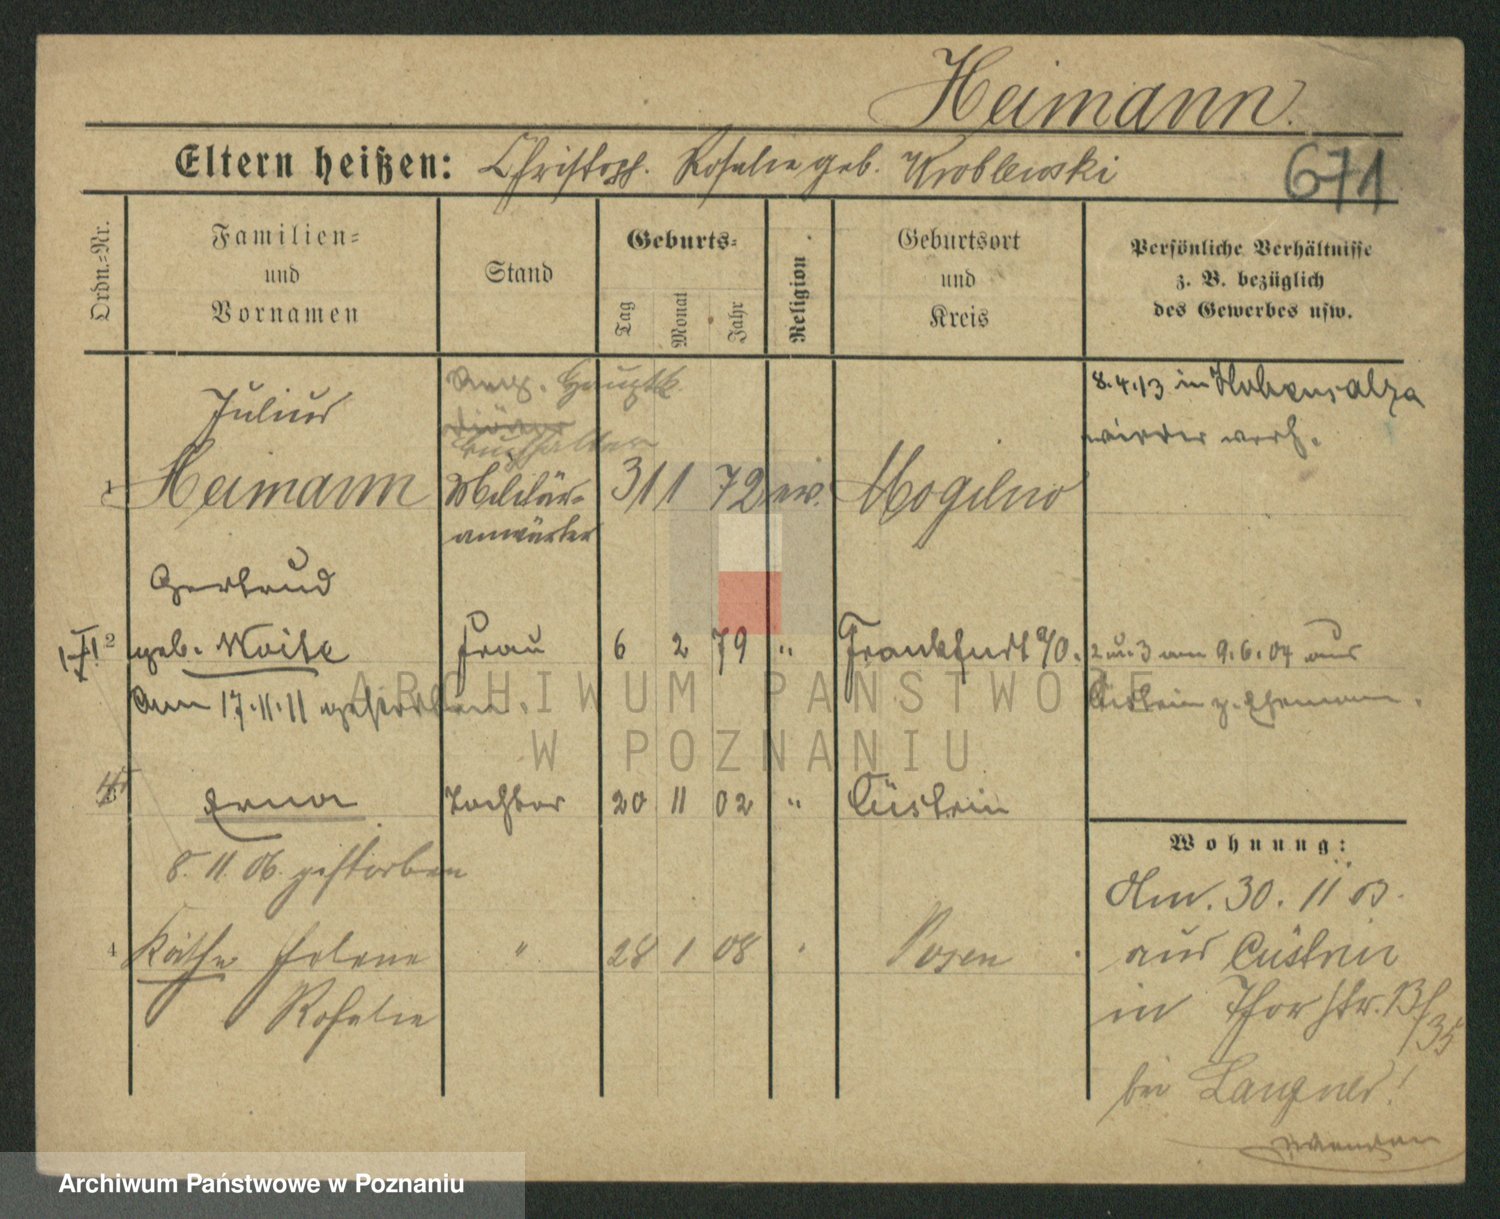 Heimann.
Eltern heißen: Christoph. Rosalie geb. Wroblewski
671
Ordn.=Nr.
Familien=
und
Vornamen
Stand
Geburts=
Tag
Monat
Jahr
Religion
Geburtsort
und
Kreis
Persönliche Verhältnisse
z. B. bezüglich
des Gewerbes usw.
Julius
1 Heimann
Buchhalter
Militär=
anwärter
31 1 72 ev. Mogilno
8.4.13 in Hohensalza
wieder verh.
Gertrud
2 geb. Noite Frau 6 2 79 " Frankfurt a/O.
am 17.11.11 gestorben.
2 u. 3 am 9.6.04 aus
Cüstrin z. Ehemann.
3 Erna Tochter 20 11 02 " Cüstrin
8. 11 06. gestorben
4 Käthe Helene " 28 1 08 " Posen
Rosalie
Wohnung:
Am. 30. 11 03.
aus Cüstrin
in Thorstr. 13/
/35
bei Langner!
ARCHIWUM PAŃSTWOWE
W POZNANIU
Archiwum Państwowe w Poznaniu